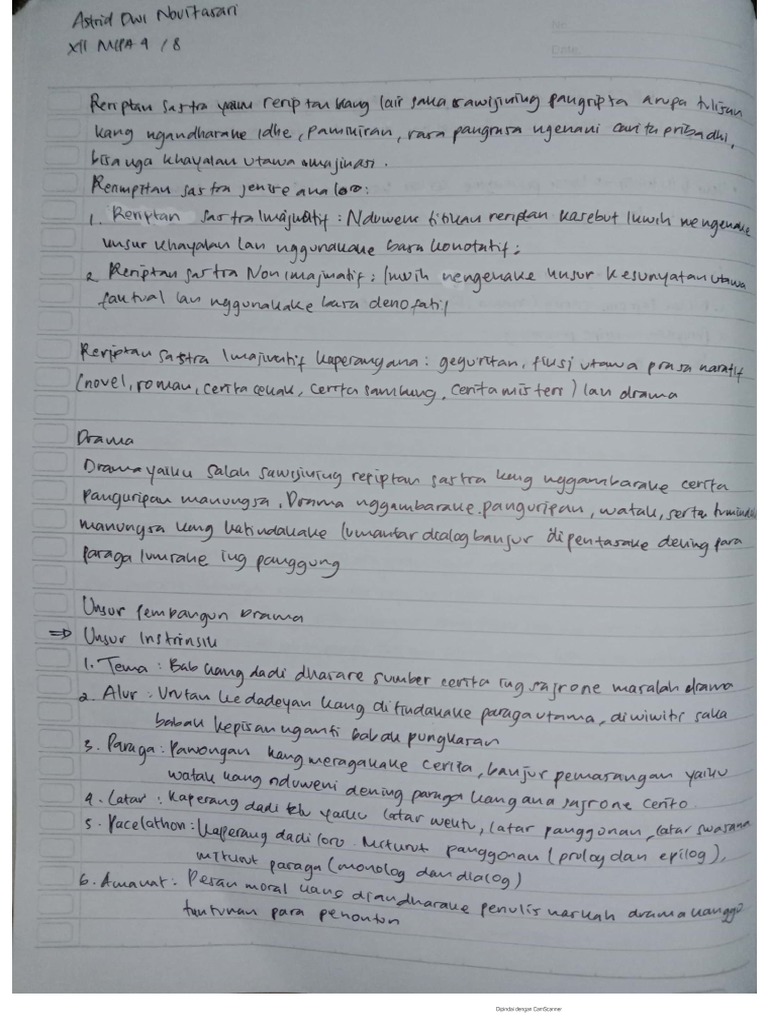 Astrid Dwi Novitasari
XII MIPA 4 / 8
No.
Date.
Reriptan sastra yaiku reriptan kang lair saka sawijining pangripta arupa tulisan
kang ngandharake idhe, pamikiran, rasa pangrasa ngenani carita pribadhi,
bisa uga khayalan utawa imajinasi.
Reriptan sastra jenise ana loro:
1. Reriptan sastra Imajinatif : Nduweni titikan reriptan kasebut luwih nengenake
unsur khayalan lan nggunakake basa konotatif;
2. Reriptan sastra Non imajinatif : luwih nengenake unsur kesunyatan utawa
faktual lan nggunakake basa denotatif
Reriptan sastra Imajinatif kaperangana : geguritan, fiksi utawa prosa naratif
(novel, roman, cerita cekak, cerita sambung, cerita misteri) lan drama
Drama
Drama yaiku salah sawijining reriptan sastra kang nggambarake cerita
panguripan manungsa. Drama nggambarake panguripan, watak, serta tumindak
manungsa kang katindakake lumantar dialog banjur dipentasake dening para
paraga lumrahe ing panggung
Unsur Pembangun Drama
⇒ Unsur Instrinsik
1. Tema : Bab kang dadi dhasare sumber cerita ing sajrone masalah drama
2. Alur : Urutan kedadeyan kang ditindakake paraga utama, diwiwiti saka
babak kepisan nganti babak pungkasan
3. Paraga : Pawongan kang meragakake cerita, banjur pemasangan yaiku
watak kang nduweni dening paraga kang ana sajrone cerito
4. Latar : Kaperang dadi telu yaiku latar wektu, latar panggonan, latar swasana
5. Pacelathon : Kaperang dadi loro. Miturut panggonan (prolog dan epilog),
miturut paraga (monolog dan dialog)
6. Amanat : Pesan moral kang diandharake penulis naskah drama kanggo
tuntunan para penonton
Dipindai dengan CamScanner